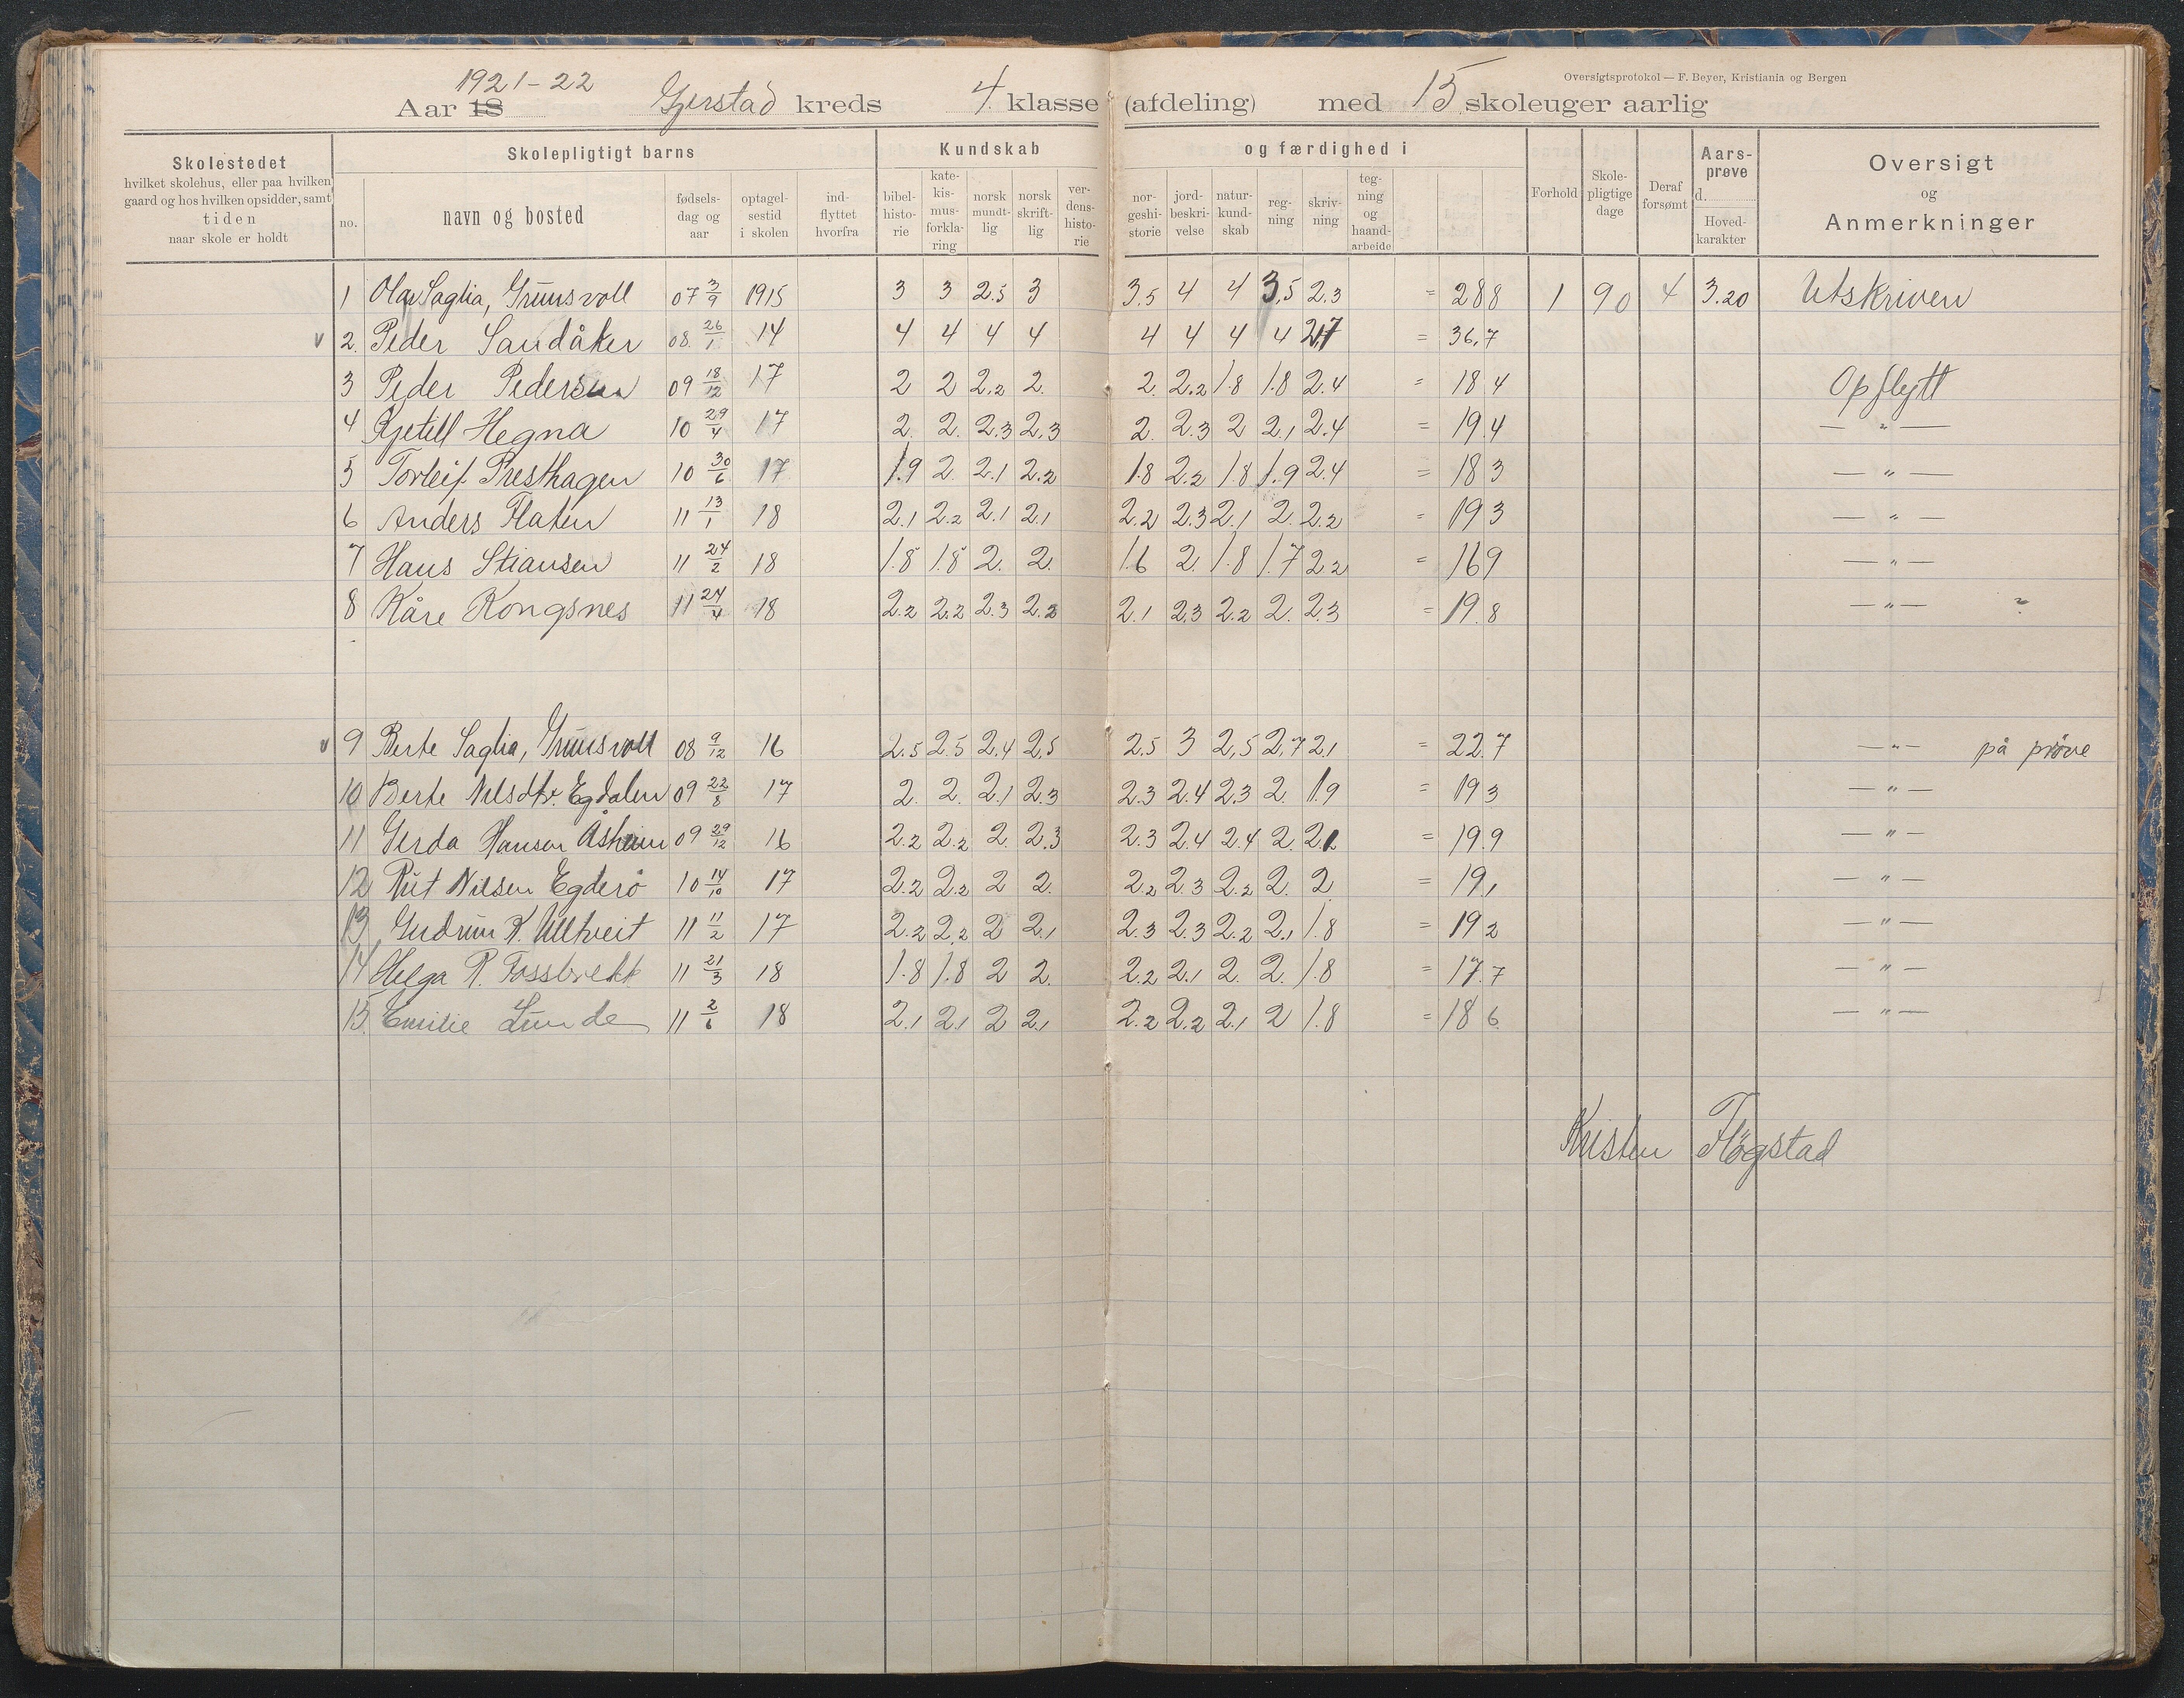 Oversigtsprotokol — F. Beyer, Kristiania og Bergen
1921-22
Aar 18 Gjerstad kreds 4. klasse (afdeling) med 15 skoleuger aarlig
Skolestedet
hvilket skolehus, eller paa hvilken
gaard og hos hvilken opsidder, samt
tiden
naar skole er holdt
Skolepligtigt barns
no.
navn og bosted
fødsels-
dag og
aar
optagel-
sestid
i skolen
ind-
flyttet
hvorfra
Kundskab
bibel-
histo-
rie
kate-
kis-
mus-
forkla-
ring
norsk
mundt-
lig
norsk
skrift-
lig
ver-
dens-
histo-
rie
og færdighed i
nor-
geshi-
storie
jord-
beskri-
velse
natur-
kund-
skab
reg-
ning
skriv-
ning
teg-
ning
og
haand-
arbeide
Forhold
Skole-
pligtige
dage
Deraf
forsømt
Aars-
prøve
d.
Hoved-
karakter
Oversigt
og
Anmerkninger
1 Olav Saglia, Grunsvoll 07 3/9 1915 3 3 2.5 3 3.5 4 4 3,5 2.3 = 288 1 90 4 3.20 Utskriven
v 2. Peder Sandåker 08. 26/1 14 4 4 4 4 4 4 4 4 2,7 = 36,7
3 Peder Pedersen 09 18/12 17 2 2 2,2 2. 2. 2.2 1.8 1.8 2.4 = 18 4 Opflytt
4 Kjetill Hegna 10 29/4 17 2. 2. 2.3 2,3 2. 2.3 2 2,1 2.4 = 19.4 — " —
5 Torleif Presthagen 10 30/6 17 1.9 2. 2.1 2.2 1.8 2.2 1.8 1.9 2.4 = 18 3 — " —
6 Anders Flaten 11 13/1 18 2.1 2.2 2.1 2.1 2.2 2.3 2.1 2. 2.2 = 19 3 — " —
7 Hans Stiansen 11 24/2 18 1.8 1.8 2. 2. 1.6 2. 1.8 1.7 2.2 = 16 9 — " —
8 Kåre Kongsnes 11 24/4 18 2.2 2.2 2.3 2.2 2.1 2.3 2.2 2. 2.3 = 19.8 — " —
v 9 Berte Saglia, Grunsvoll 08 9/12 16 2.5 2.5 2.4 2,5 2.5 3 2,5 2,7 2,1 = 22.7 — " — på prøve
10 Berte Nilsdtr. Egdalen 09 22/8 17 2. 2. 2.1 2.3 2.3 2.4 2.3 2. 1.9 = 19 3 — " —
11 Gerda Hansen Åsheim 09 29/12 16 2.2 2.2 2. 2.3 2.3 2.4 2.4 2. 2.1 = 19.9 — " —
12 Rut Nilsen Egderø 10 14/10 17 2.2 2.2 2 2. 2.2 2.3 2.2 2. 2. = 19,1 — " —
13 Gudrun K. Ulltveit 11 11/2 17 2.2 2.2 2 2.1 2.3 2.3 2.2 2.1 1.8 = 19 2 — " —
14 Helga R. Fossbrekk 11 21/3 18 1.8 1.8 2 2. 2.2 2.1 2. 2. 1.8 = 17.7 — " —
15. Emilie Lunde 11 2/6 18 2.1 2.1 2 2.1 2.2 2.2 2.1 2 1.8 = 18 6 — " —
Kristen Fløgstad